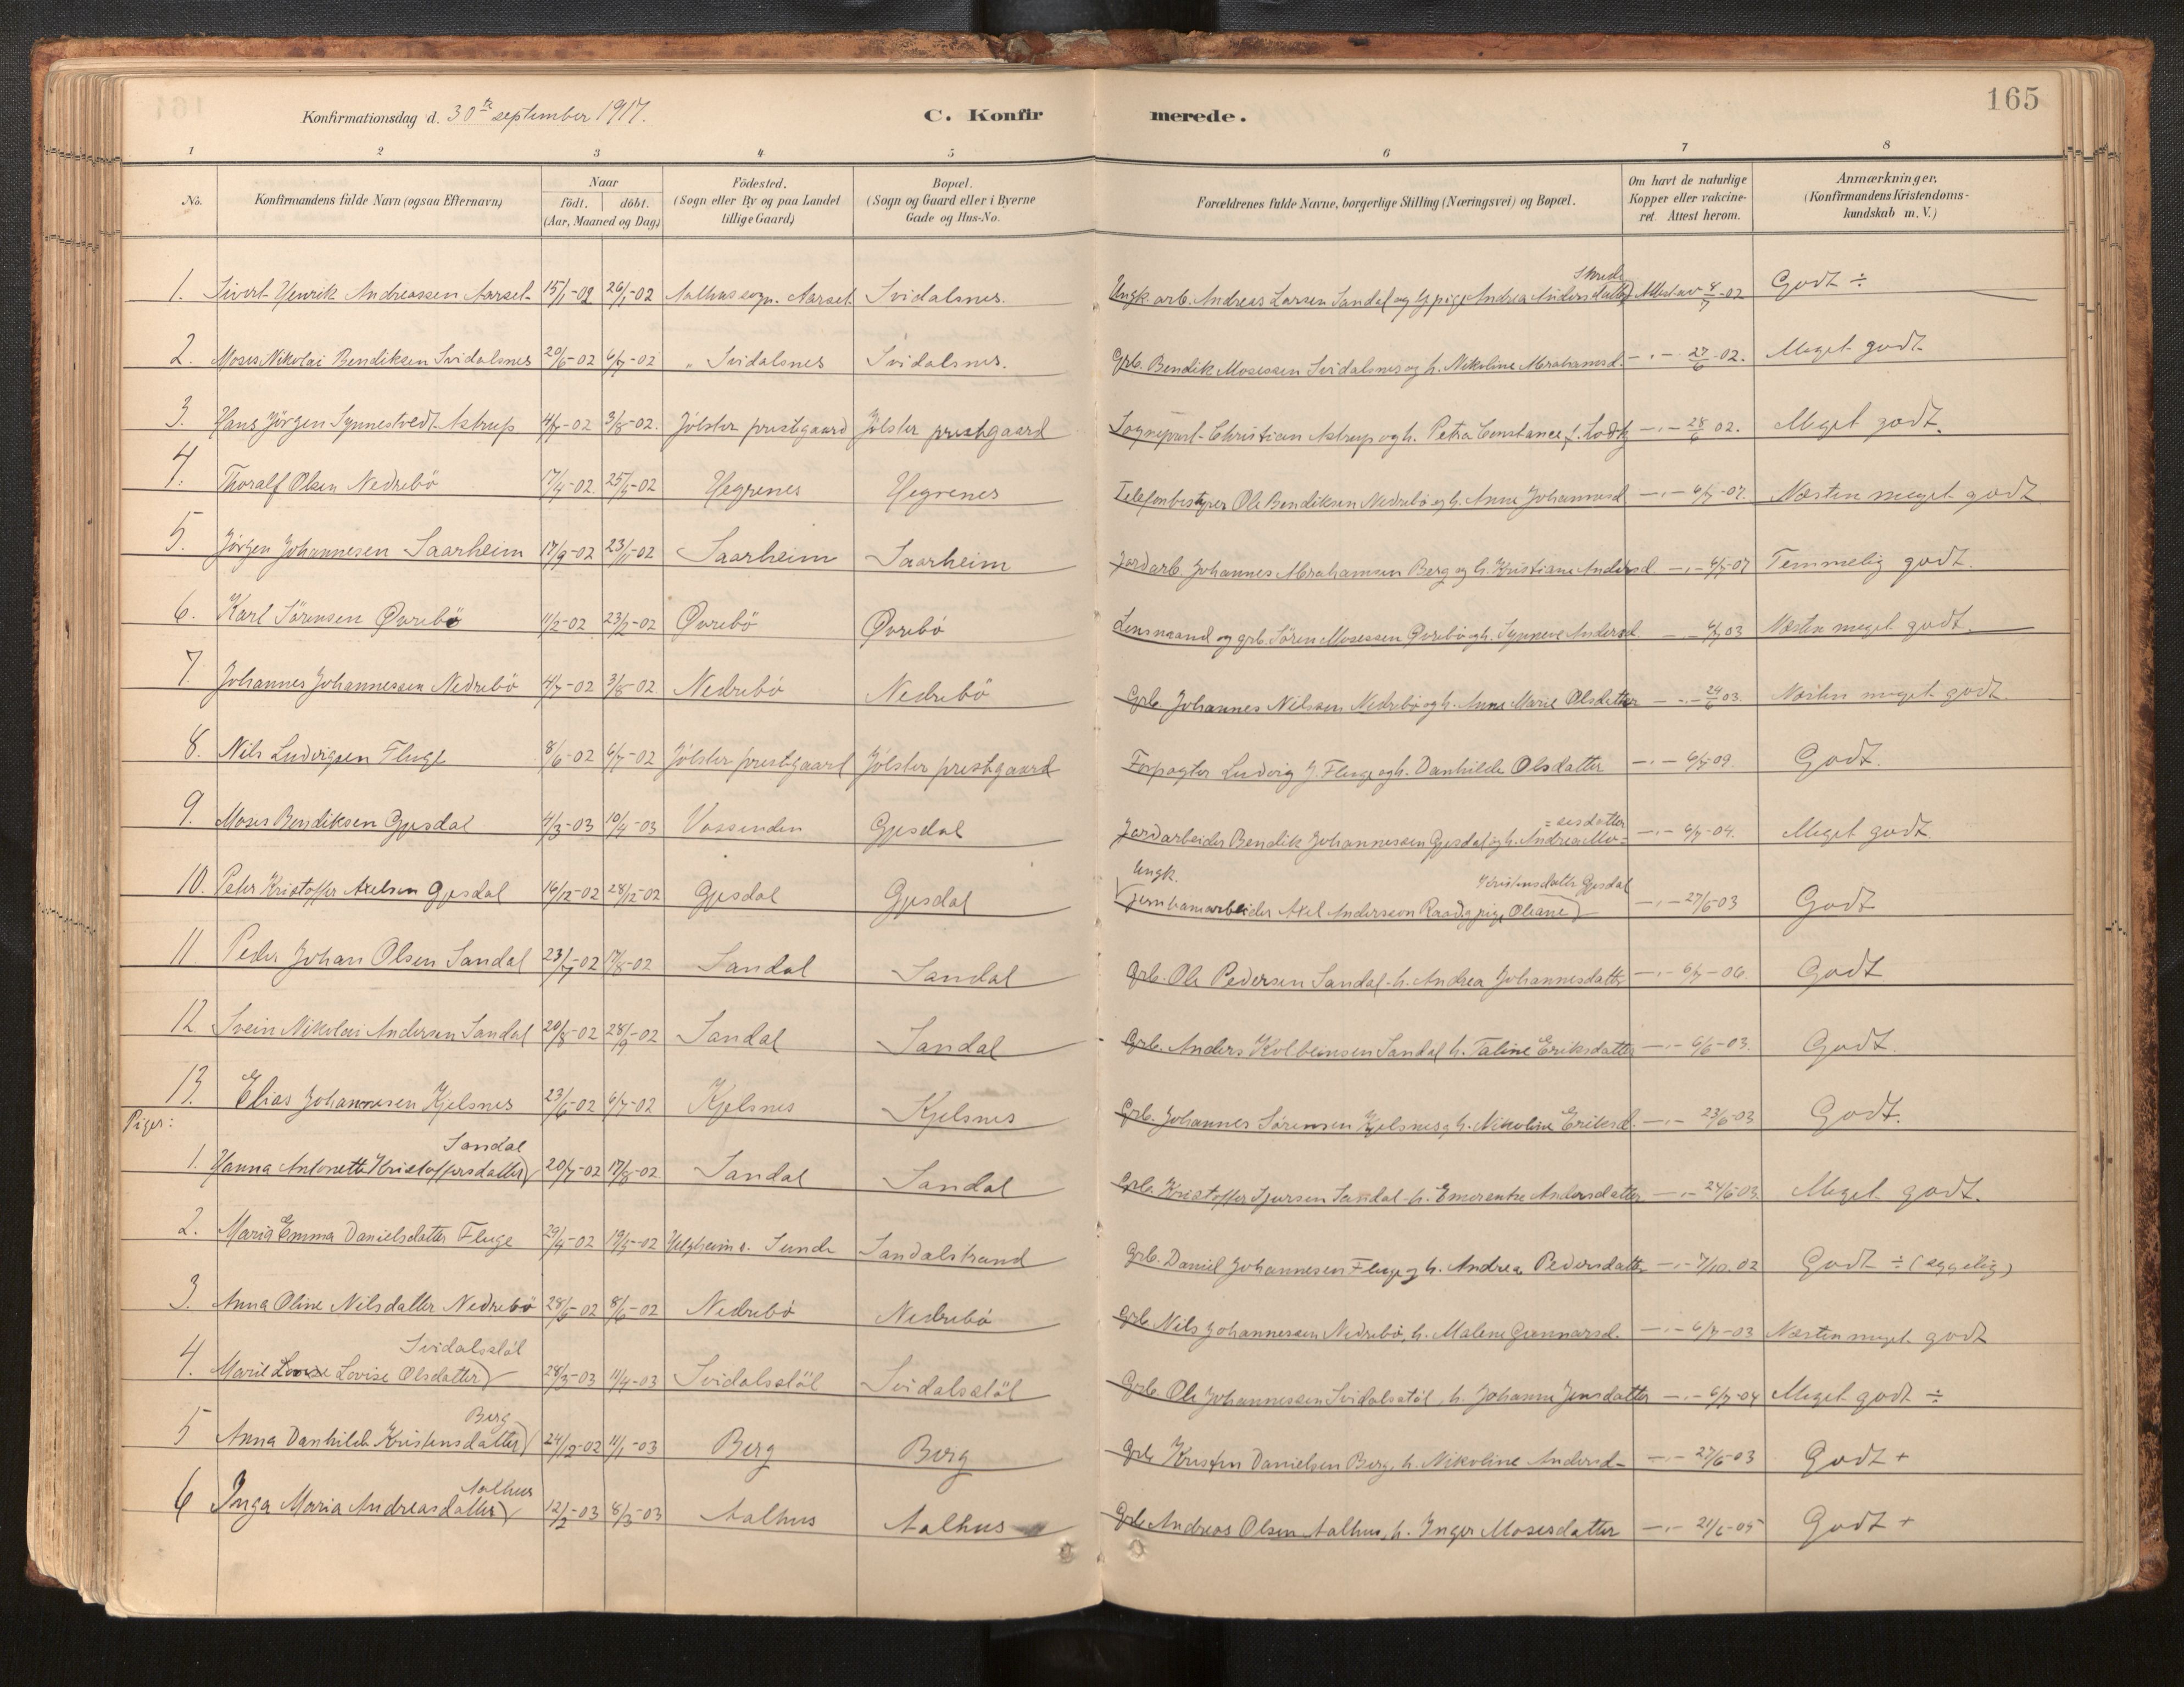 165
Konfirmationsdag d. 30te september 1917.
C. Konfirmerede.
1 2 3 4 5 6 7 8
No. Konfirmandens fulde Navn (ogsaa Efternavn) Naar födt. döbt. (Aar, Maaned og Dag) Födested. (Sogn eller By og paa Landet tillige Gaard) Bopæl. (Sogn og Gaard eller i Byerne Gade og Hus-No. Forældrenes fulde Navne, borgerlige Stilling (Næringsvei) og Bopæl. Om havt de naturlige Kopper eller vakcineret. Attest herom. Anmærkninger. (Konfirmandens Kristendomskundskab m. V.)
1. Sivert Henrik Andreassen Aarset 15/1-02 26/1-02 Aalhus sogn. Aarset Svidalsnes. Ungk. arb. Andreas Larsen Sandal og G. pige Andrea Andersdatter Skrede Attest av 8/7-02 Godt ÷
2. Moses Nikolai Bendiksen Svidalsnes 20/6-02 6/7-02 " Svidalsnes Svidalsnes. Grb. Bendik Mosessen Svidalsnes og h. Nikoline Abrahamsd. -"- 27/6-02. Meget godt
3. Hans Jörgen Synnestvedt Astrup 4/7-02 3/8-02. Jölster prestgaard Jölster prestgaard Sognepræst Christian Astrup og h. Petra Constance f. -"- 28/6 02. Meget godt.
4. Thoralf Olsen Nedrebö 17/4-02. 25/5-02 Hegrenes Hegrenes Telefonbestyrer Ole Bendiksen Nedrebö og h. Anna Johannesd -"- 6/7-07. Næsten meget godt
5. Jörgen Johannesen Saarheim 17/9-02 23/11-02 Saarheim Saarheim Jordarb. Johannes Abrahamsen Berg og h. Kristiane Andersd. -"- 6/7-07 Temmelig godt.
6. Karl Sörensen Øvrebö 11/2-02 23/2-02 Øvrebö Øvrebö Lensmand og grb. Sören Mosessen Øvrebö og h. Synneve Andersd. -"- 6/7 03 Næsten meget godt.
7. Johannes Johannessen Nedrebö 4/7-02 3/8-02 Nedrebö Nedrebö Grb. Johannes Nilssen Nedrebö og h. Anne Marie Olsdatter -"- 24/6 03. Næsten meget godt.
8. Nils Ludvigsen Fluge 8/6-02 6/7-02 Jölster prestgaard Jölster prestgaard Forpagter Ludvig J. Fluge og h. Danhilde Olsdatter -"- 6/7-09. Godt.
9. Moses Bendiksen Gjesdal 4/3-03 10/4-03 Vassenden Gjesdal Jordarbeider Bendik Johannessen Gjesdal og h. Andrea Mo-=sesdatter -"- 6/7-04. Meget godt.
10. Peter Kristoffer Axelsen Gjesdal 16/12-02 28/12-02 Gjesdal Gjesdal Ungk. jernbanearbeider Axel Anderssen Raad og pige Oliane Kristensdatter Gjesdal -"- 27/6-03 Godt
11 Peder Johan Olsen Sandal 23/7-02 17/8-02 Sandal Sandal Grb. Ole Pedersen Sandal - h. Andrea Johannesdatter -"- 6/7-06. Godt
12. Svein Nikolai Andersen Sandal 20/8-02 28/9-02 Sandal Sandal Grb. Anders Kolbeinsen Sandal h. Taline Eriksdatter -"- 6/6-03. Godt.
13. Elias Johannesen Kjelsnes 23/6-02 6/7-02 Kjelsnes Kjelsnes Grb. Johannes Sörensen Kjelsnes og h. Nikoline Eriksd. -"- 23/6-03 Godt.
Piger:
1. Hanna Antonette Kristoffersdatter Sandal 20/7-02 17/8-02 Sandal Sandal Grb. Kristoffer Sjursen Sandal - h. Emerentze Andersdatter -"- 24/6-03. Meget godt.
2. Maria Emma Danielsdatter Fluge 29/4-02 19/5-02 Helgheim s. Sunde Sandalstrand Grb. Daniel Johannesen Fluge og h. Andrea Pedersdatter -"- 7/10.02 Godt ÷ (sygelig)
3. Anna Oline Nilsdatter Nedrebö 28/5-02 8/6-02 Nedrebö Nedrebö Grb. Nils Johannessen Nedrebö, h. Malene Gunnarsd. -"- 6/7-03 Næsten meget godt
4. Marie Lovise Olsdatter Svidalsstöl 28/3-03 11/4-03 Svidalsstöl Svidalsstöl Grb. Ole Johannessen Svidalsstöl, h. Johanne Jensdatter -"- 6/7-04 Meget godt ÷
5 Anna Danhilde Kristensdatter Berg 24/12-02 11/1-03 Berg Berg Grb. Kristen Danielsen Berg, h. Nikoline Andersd- -"- 27/6-03 Godt +
6 Inga Maria Andreasdatter Aalhus 12/2-03 8/3-03 Aalhus Aalhus Grb. Andreas Olsen Aalhus, h. Inger Mosesdatter -"- 21/6-05 Godt +